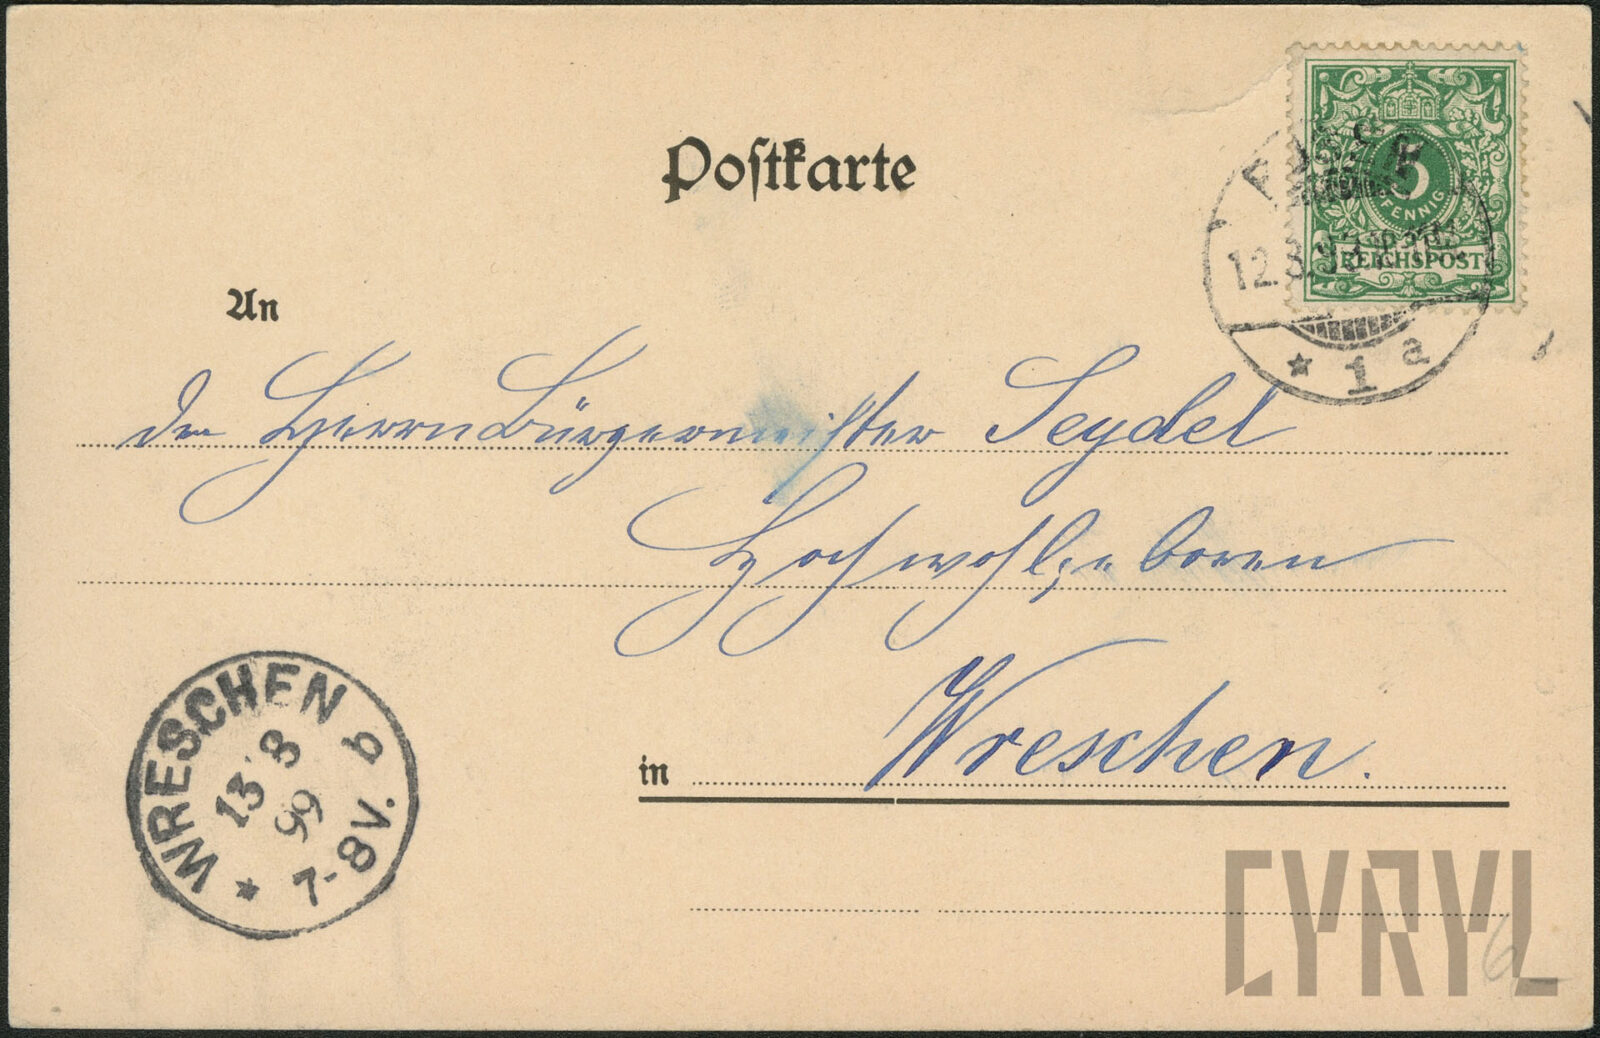 Postkarte
5
PFENNIG
REICHSPOST
12.3.
* 1 a
An
Herrn Bürgermeister Seydel
Hochwohlgeboren
in Wreschen.
WRESCHEN b
13 8
99
7-8V.
*
CYRYL